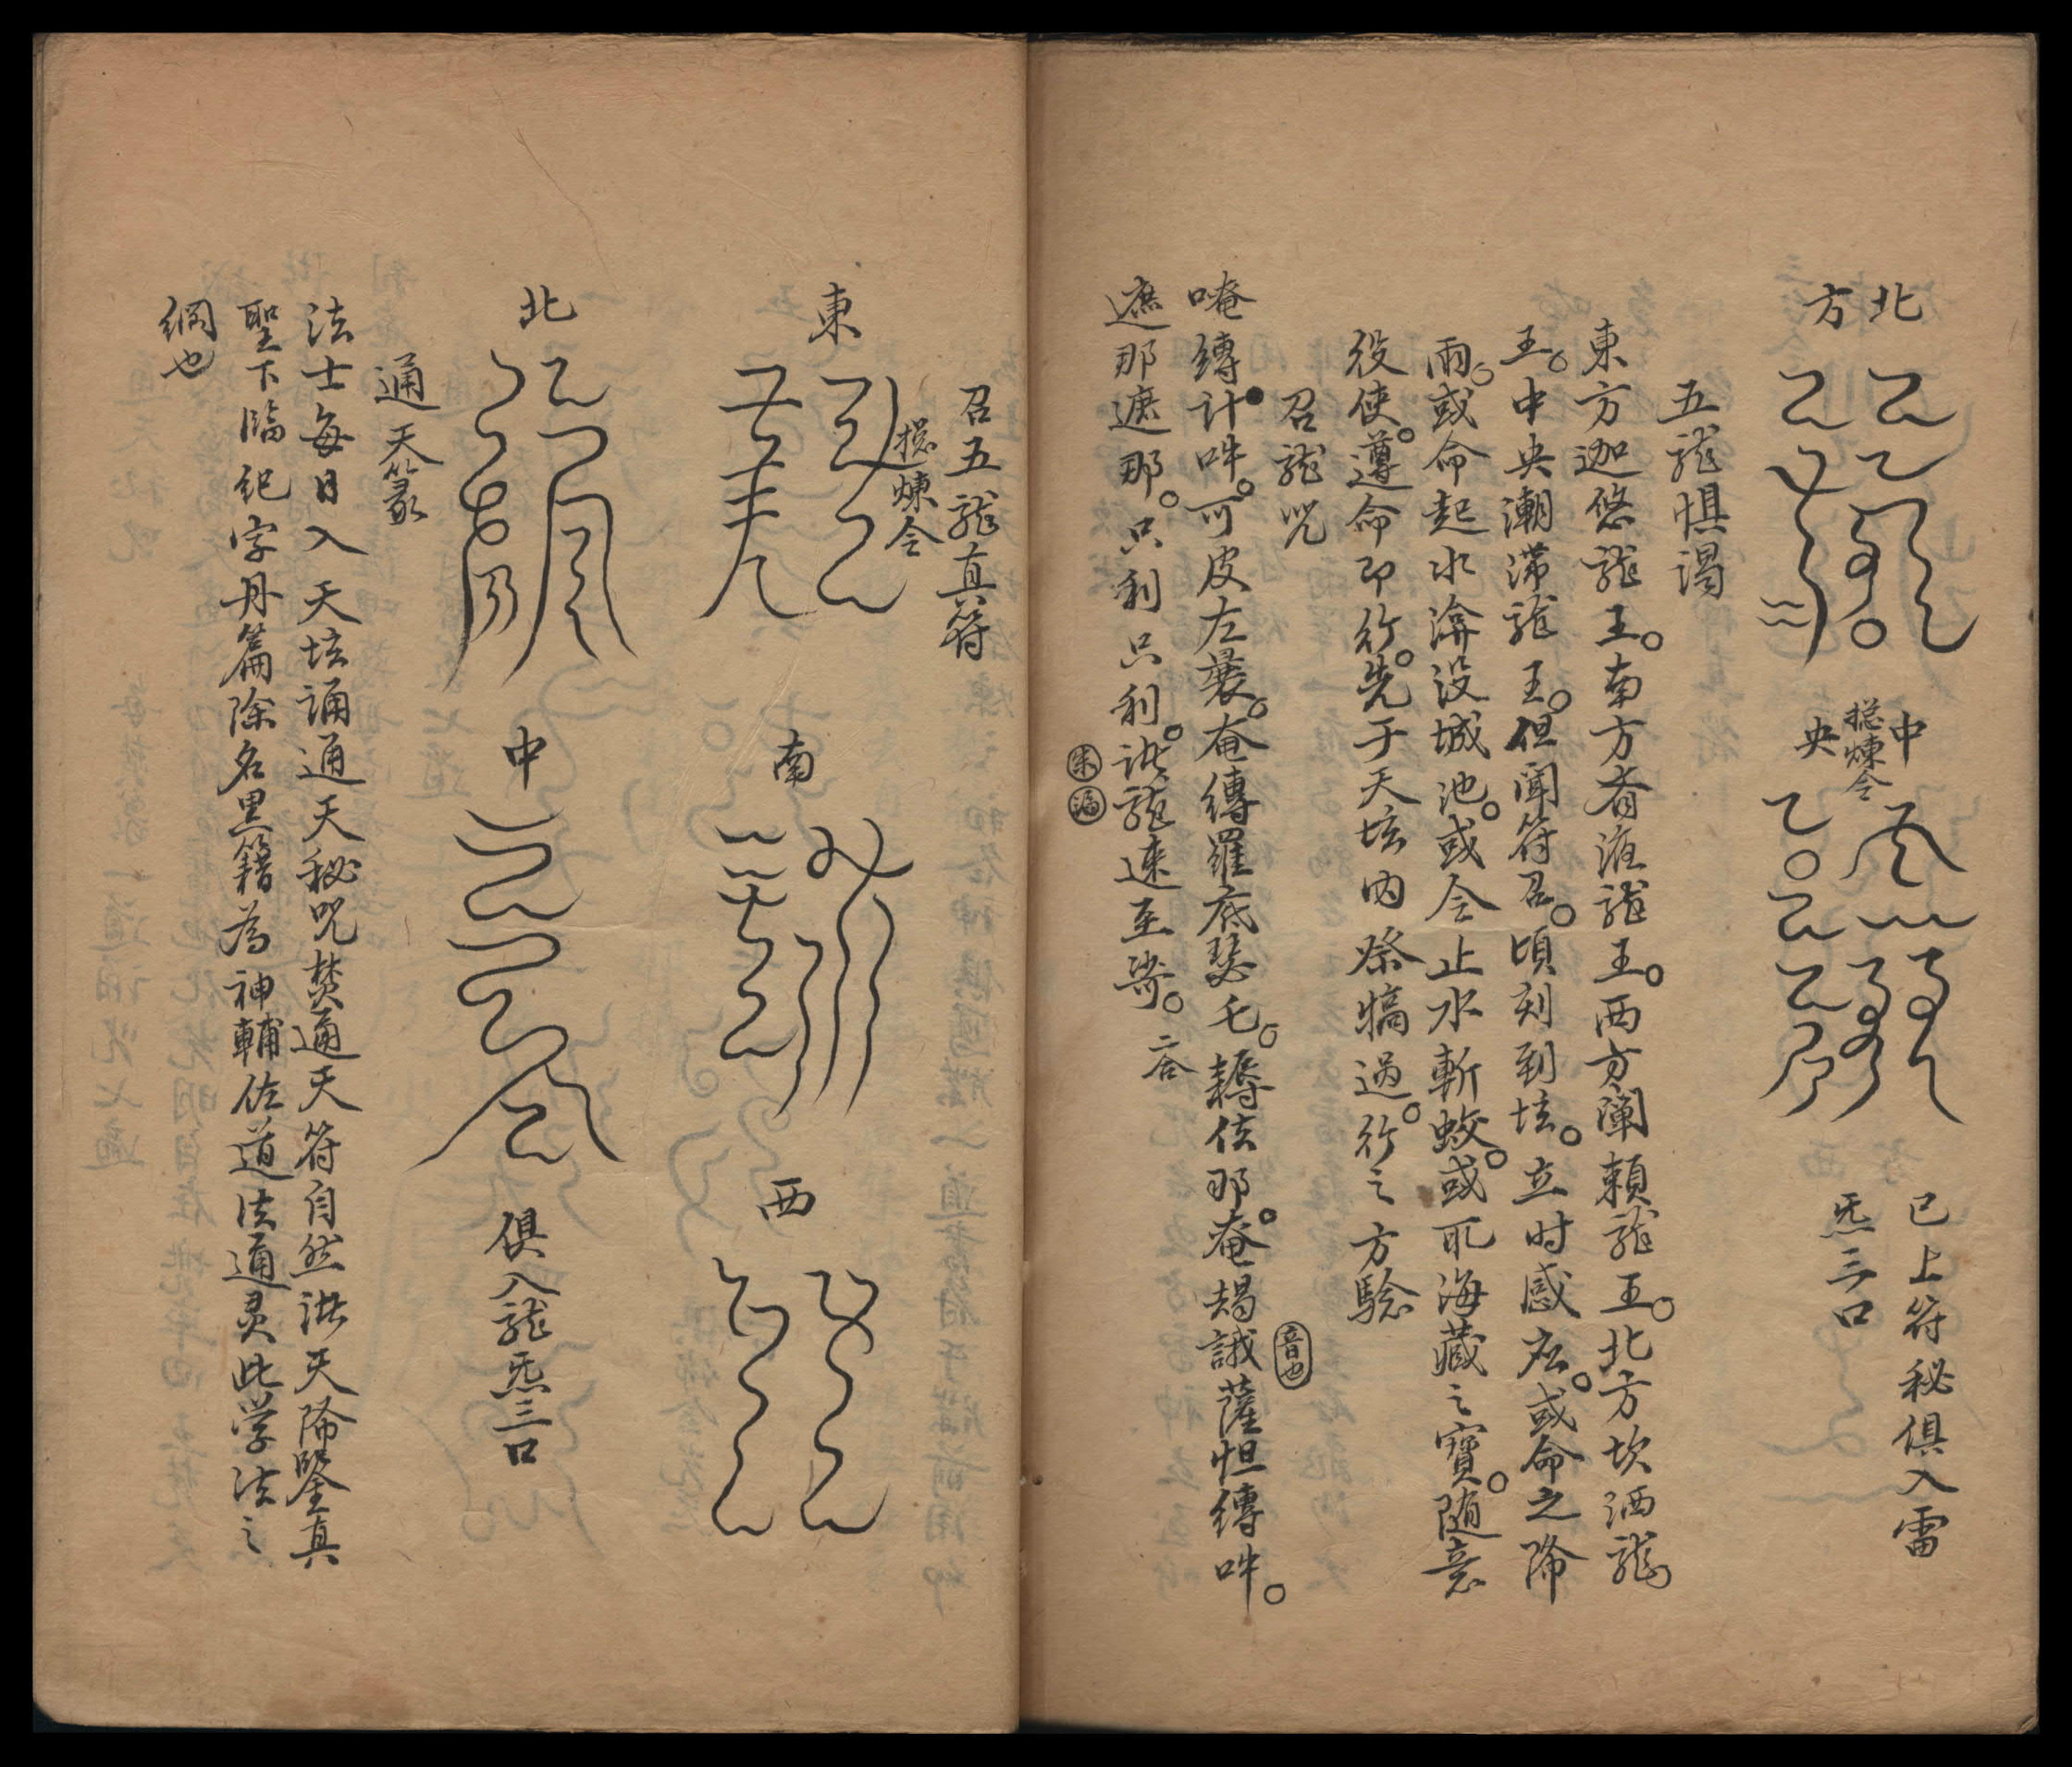 北方
中央
總煉合
已上符秘俱入雷
炁三口
五龍惧謁
東方迦悠龍王。南方脊涯龍王。西方闡賴龍王。北方坎洒龍
王。中央潮滞龍王。但聞符召。頃刻到坛。立时感应。或命之降
雨。或命起水渰没城池。或令止水斬蛟。或取海藏之寶。随意
役使。遵命即行。先于天坛内祭犒過。行之方驗
召龍咒
唵縛计吽。可皮左曩。奄縛羅底瑟乇。耨佉那。奄朅誐薩怛縛吽。
音也
遮那遮那。只利只利。洪龍速至
二合
召五龍真符
總煉合
東
南
西
北
中
俱入龍炁三口
通天篆
法士每日入天坛誦通天秘咒焚通天符自然洪天降鑒真
聖下臨紀字丹篇除名黑籍為神輔佐道法通灵此学法之
綱也